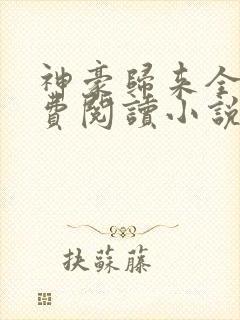 神豪歸來全
費閱讀小說
抉蘇藤